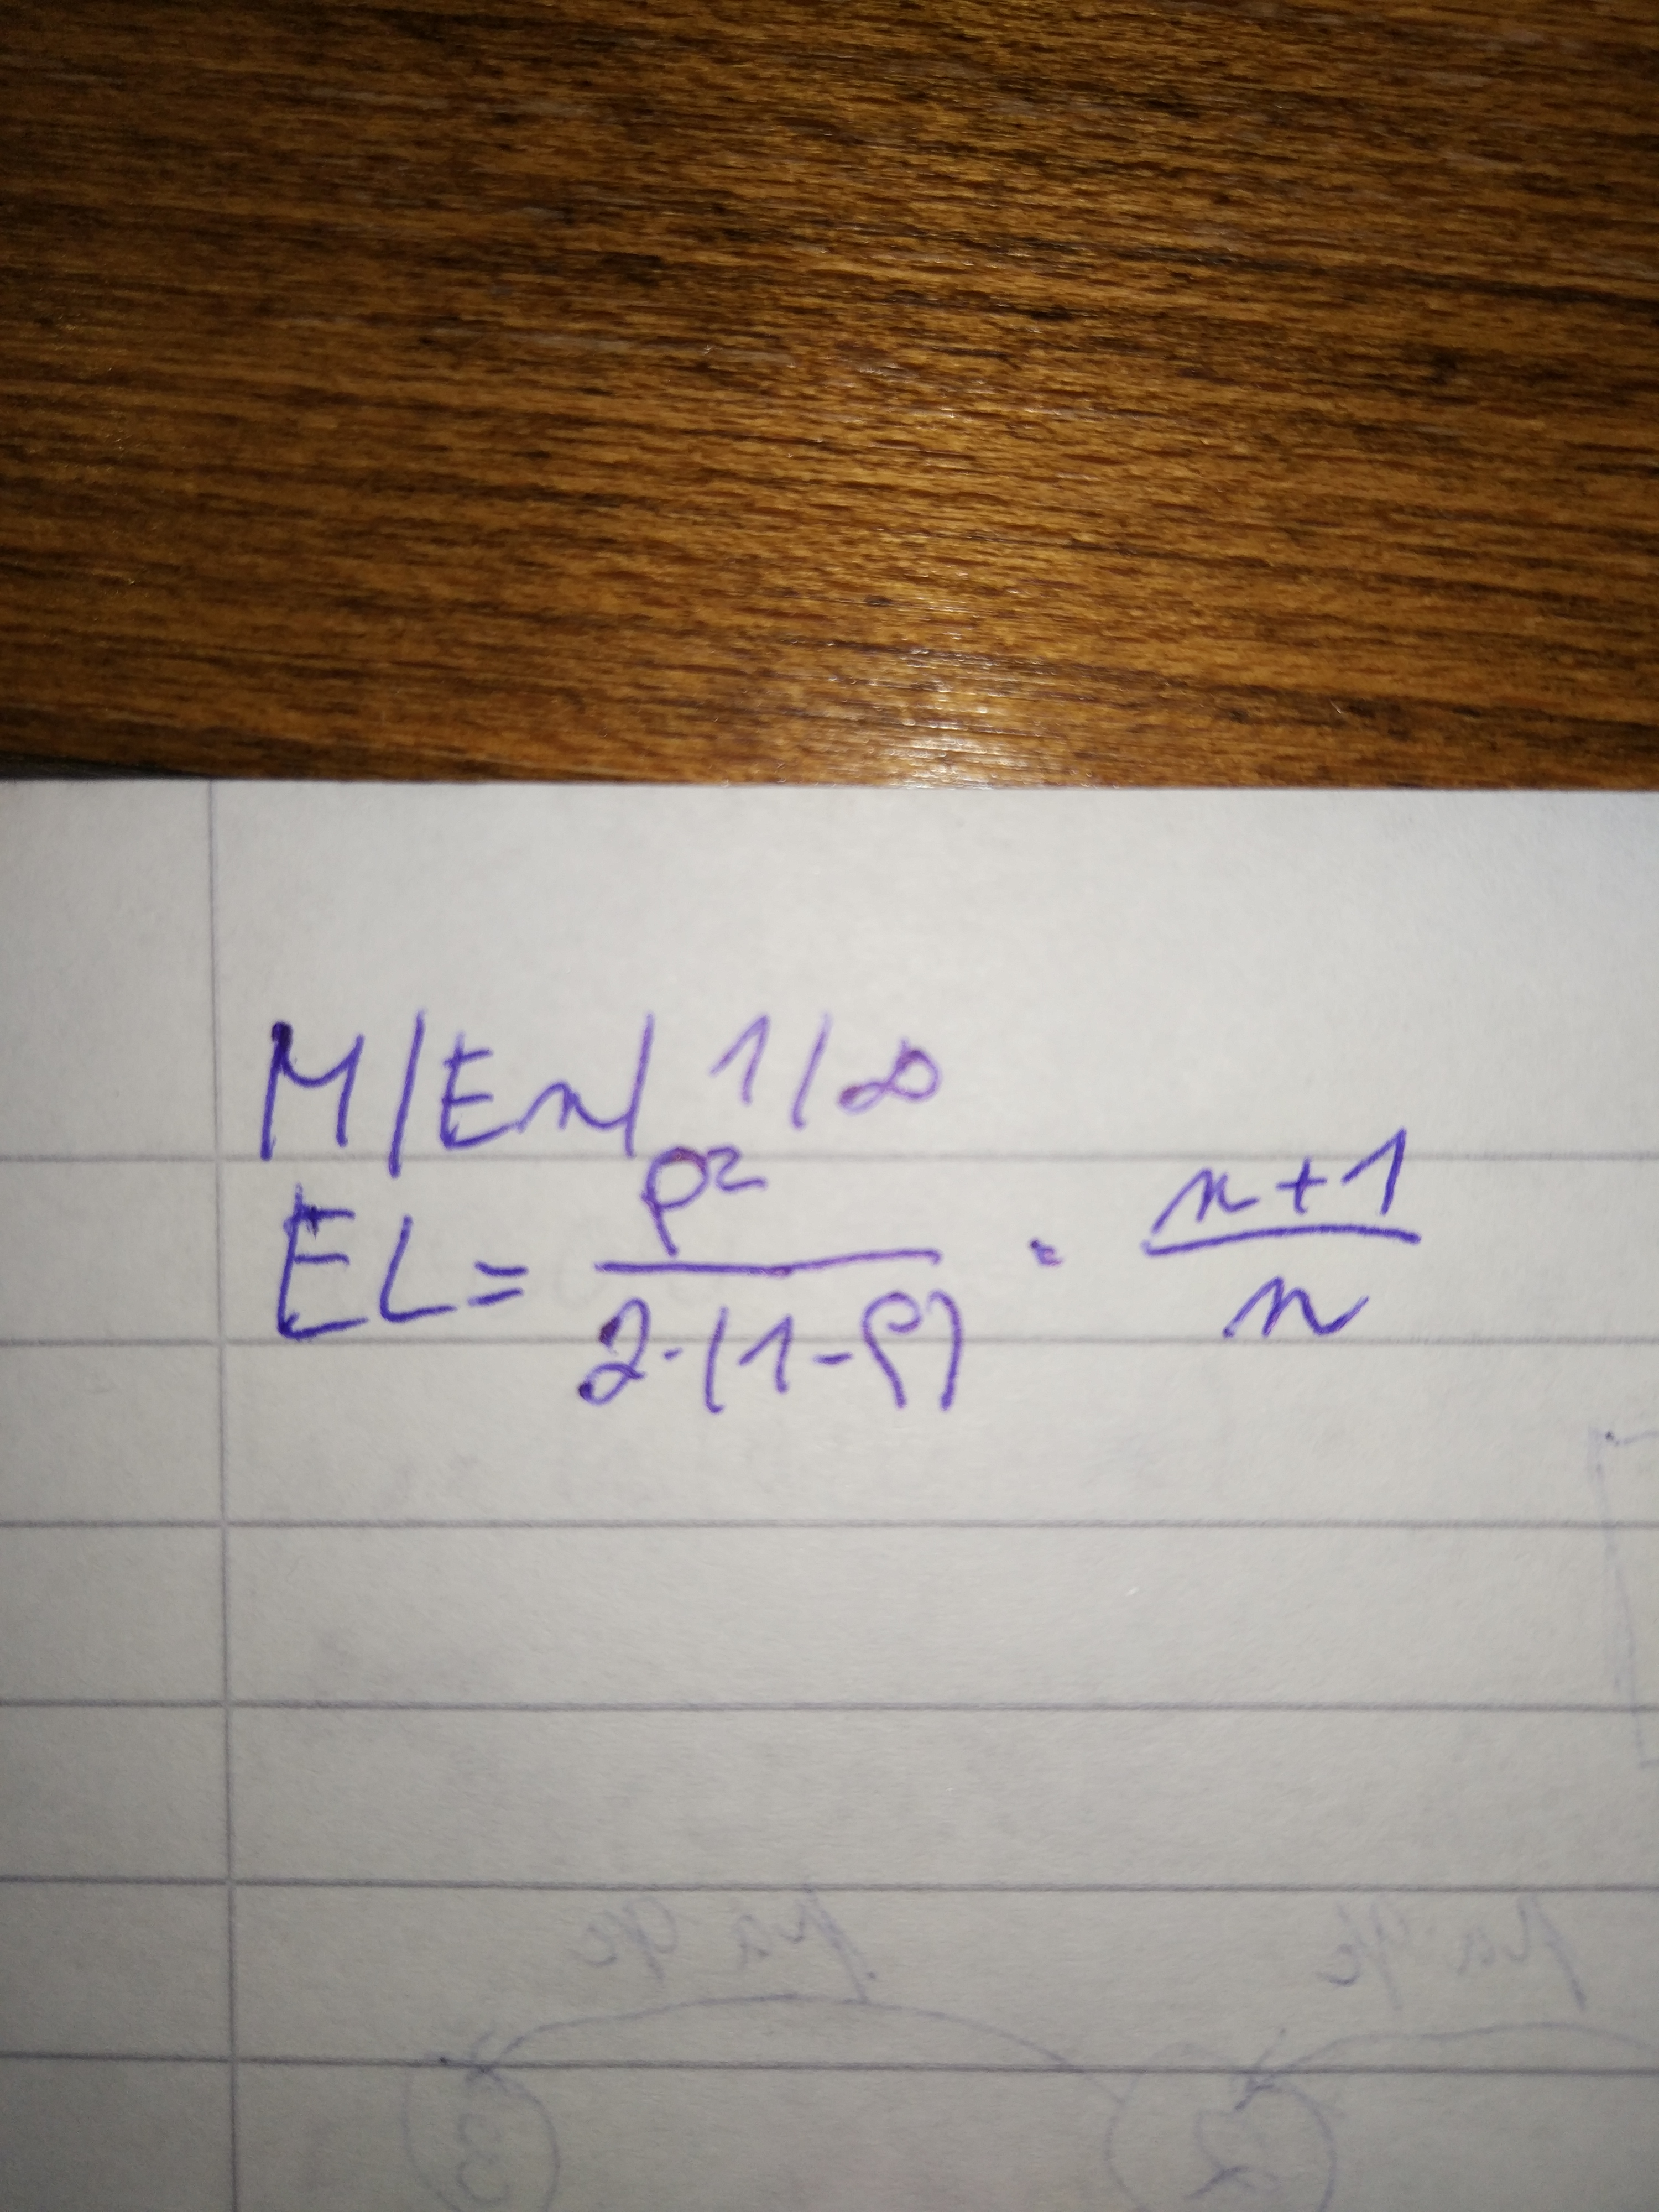 M/En/1/∞
EL = ρ²/(2·(1-ρ)) · (n+1)/n